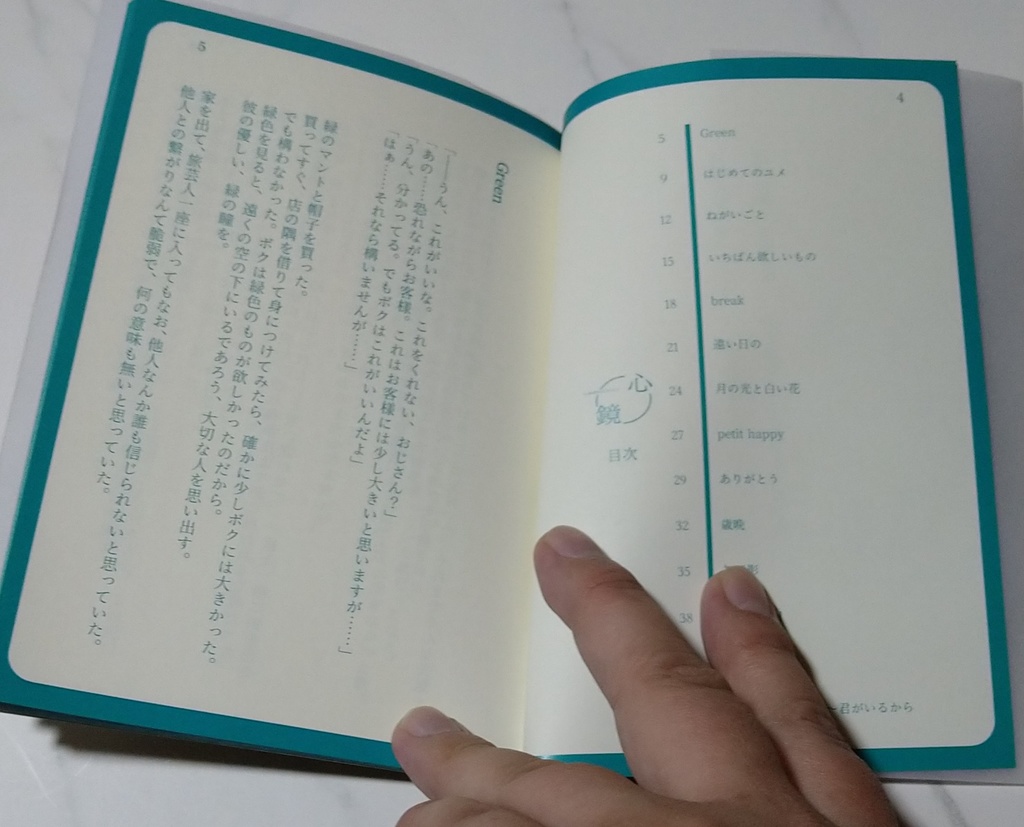 4
心鏡
目次
Green 5
はじめてのユメ 9
ねがいごと 12
いちばん欲しいもの 15
break 18
遠い日の 21
月の光と白い花 24
petit happy 27
ありがとう 29
歳晩 32
影 35
38
～君がいるから
5
Green
「――うん、これがいいな。これをくれない、おじさん？」
「あの……恐れながらお客様。これはお客様には少し大きいと思いますが……」
「うん、分かってる。でもボクはこれがいいんだよ」
「はぁ……それなら構いませんが……」
緑のマントと帽子を買った。
買ってすぐ、店の隅を借りて身につけてみたら、確かに少しボクには大きかった。
でも構わなかった。ボクは緑色のものが欲しかったのだから。
緑色を見ると、遠くの空の下にいるであろう、大切な人を思い出す。
彼の優しい、緑の瞳を。
家を出て、旅芸人一座に入ってもなお、他人なんか誰も信じられないと思っていた。
他人との繋がりなんて脆弱で、何の意味も無いと思っていた。